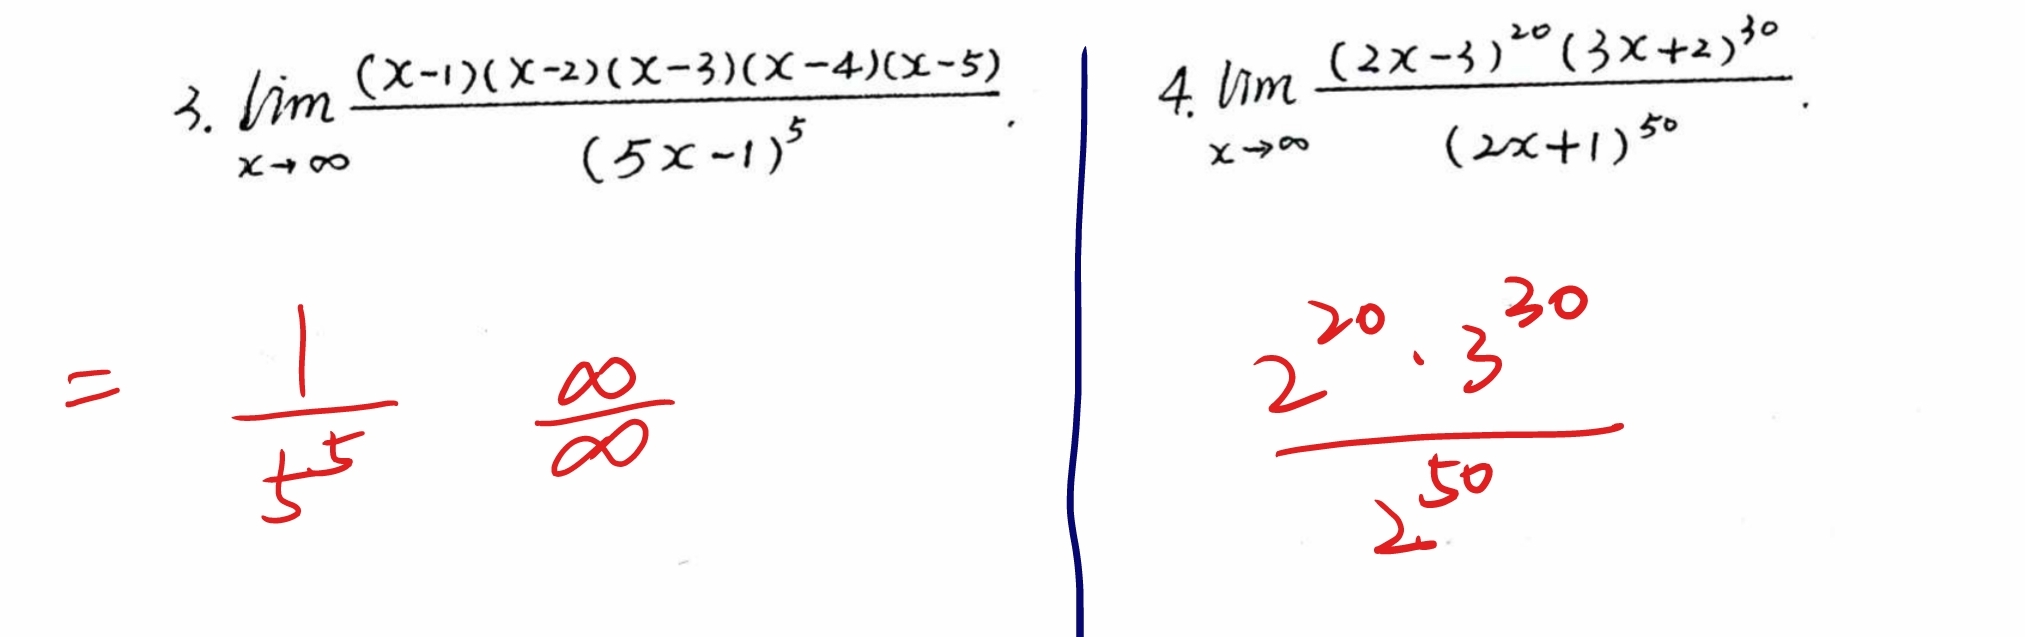 3. lim x→∞ (x-1)(x-2)(x-3)(x-4)(x-5) / (5x-1)^5 .
= 1 / 5^5    ∞ / ∞
4. lim x→∞ (2x-3)^20 (3x+2)^30 / (2x+1)^50 .
2^20 · 3^30 / 2^50